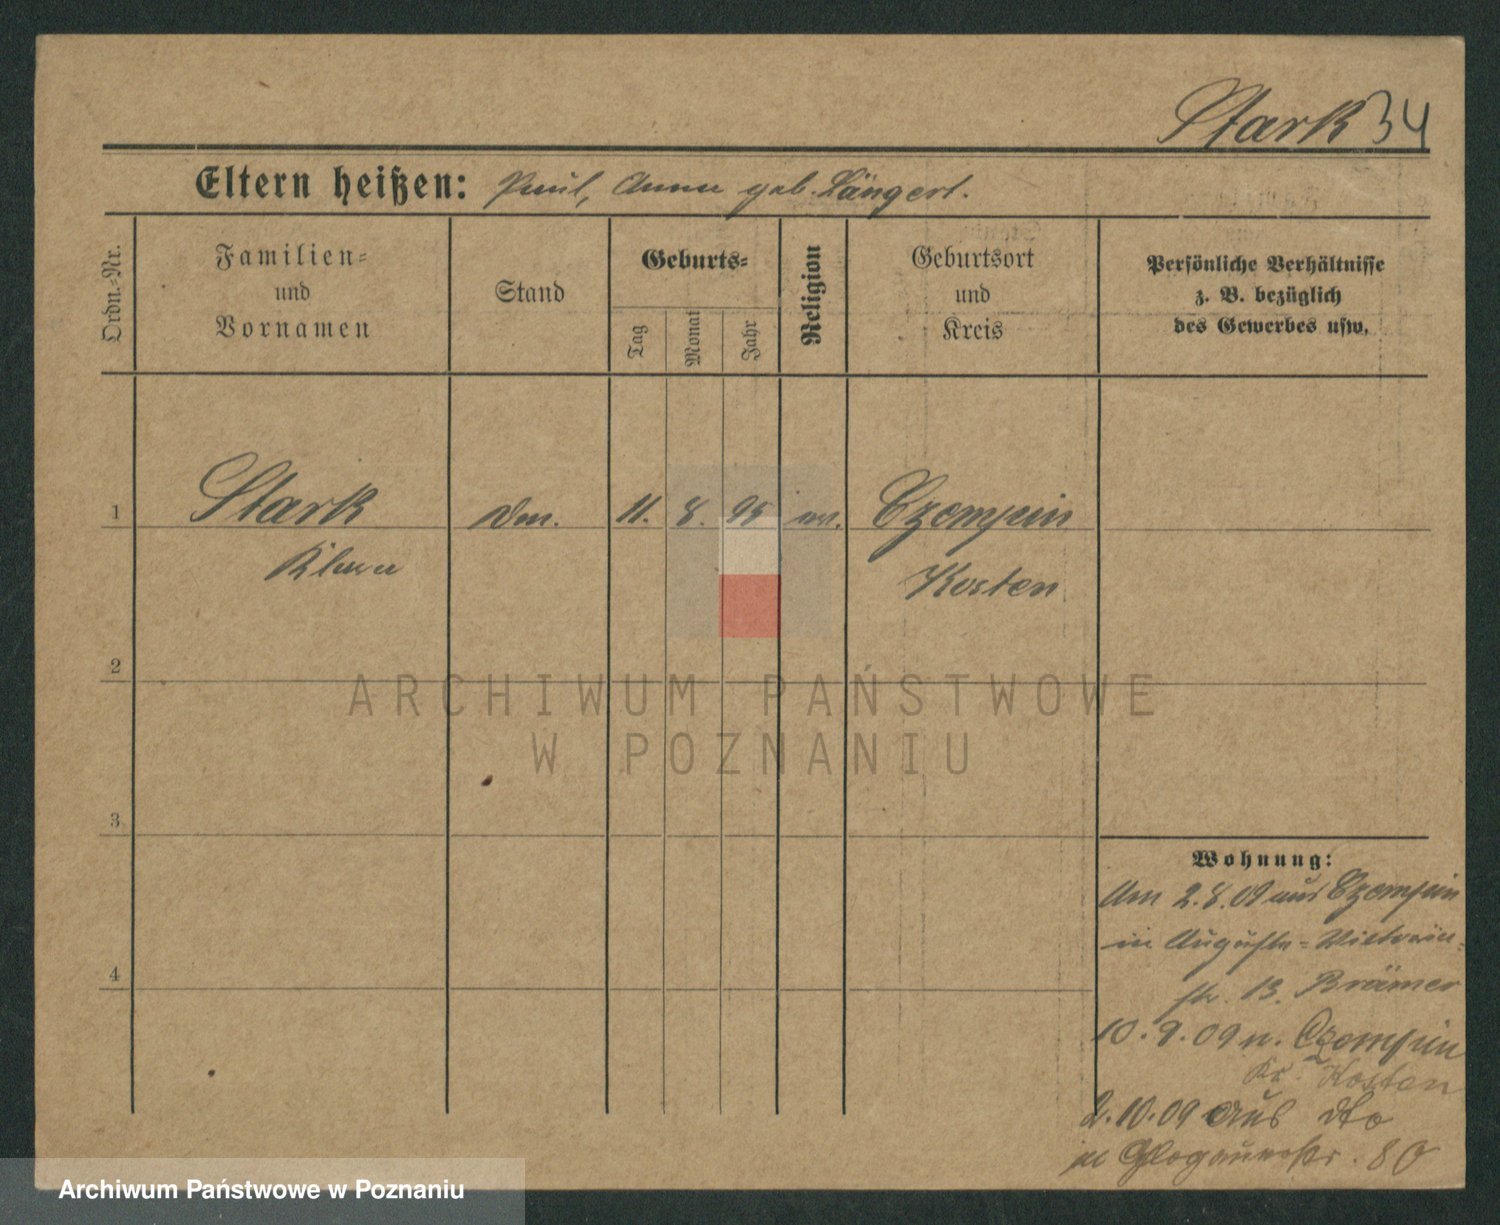 Stark 34
Eltern heißen: Paul, Anna geb. Längert.
Ordn.-Nr.
Familien-
und
Vornamen
Stand
Geburts-
Tag
Monat
Jahr
Religion
Geburtsort
und
Kreis
Persönliche Verhältnisse
z. B. bezüglich
des Gewerbes usw.
1
Stark
11. 8. 95
Czempin
Kosten
2
ARCHIWUM PAŃSTWOWE
W POZNANIU
3
4
Wohnung:
Am 2.8.09 aus Czempin
in Augusta-Victoria-
str. 13. Brämer
10.9.09 n. Czempin
Kr. Kosten
2.10.09 aus dto
in Glogauerstr. 80
Archiwum Państwowe w Poznaniu